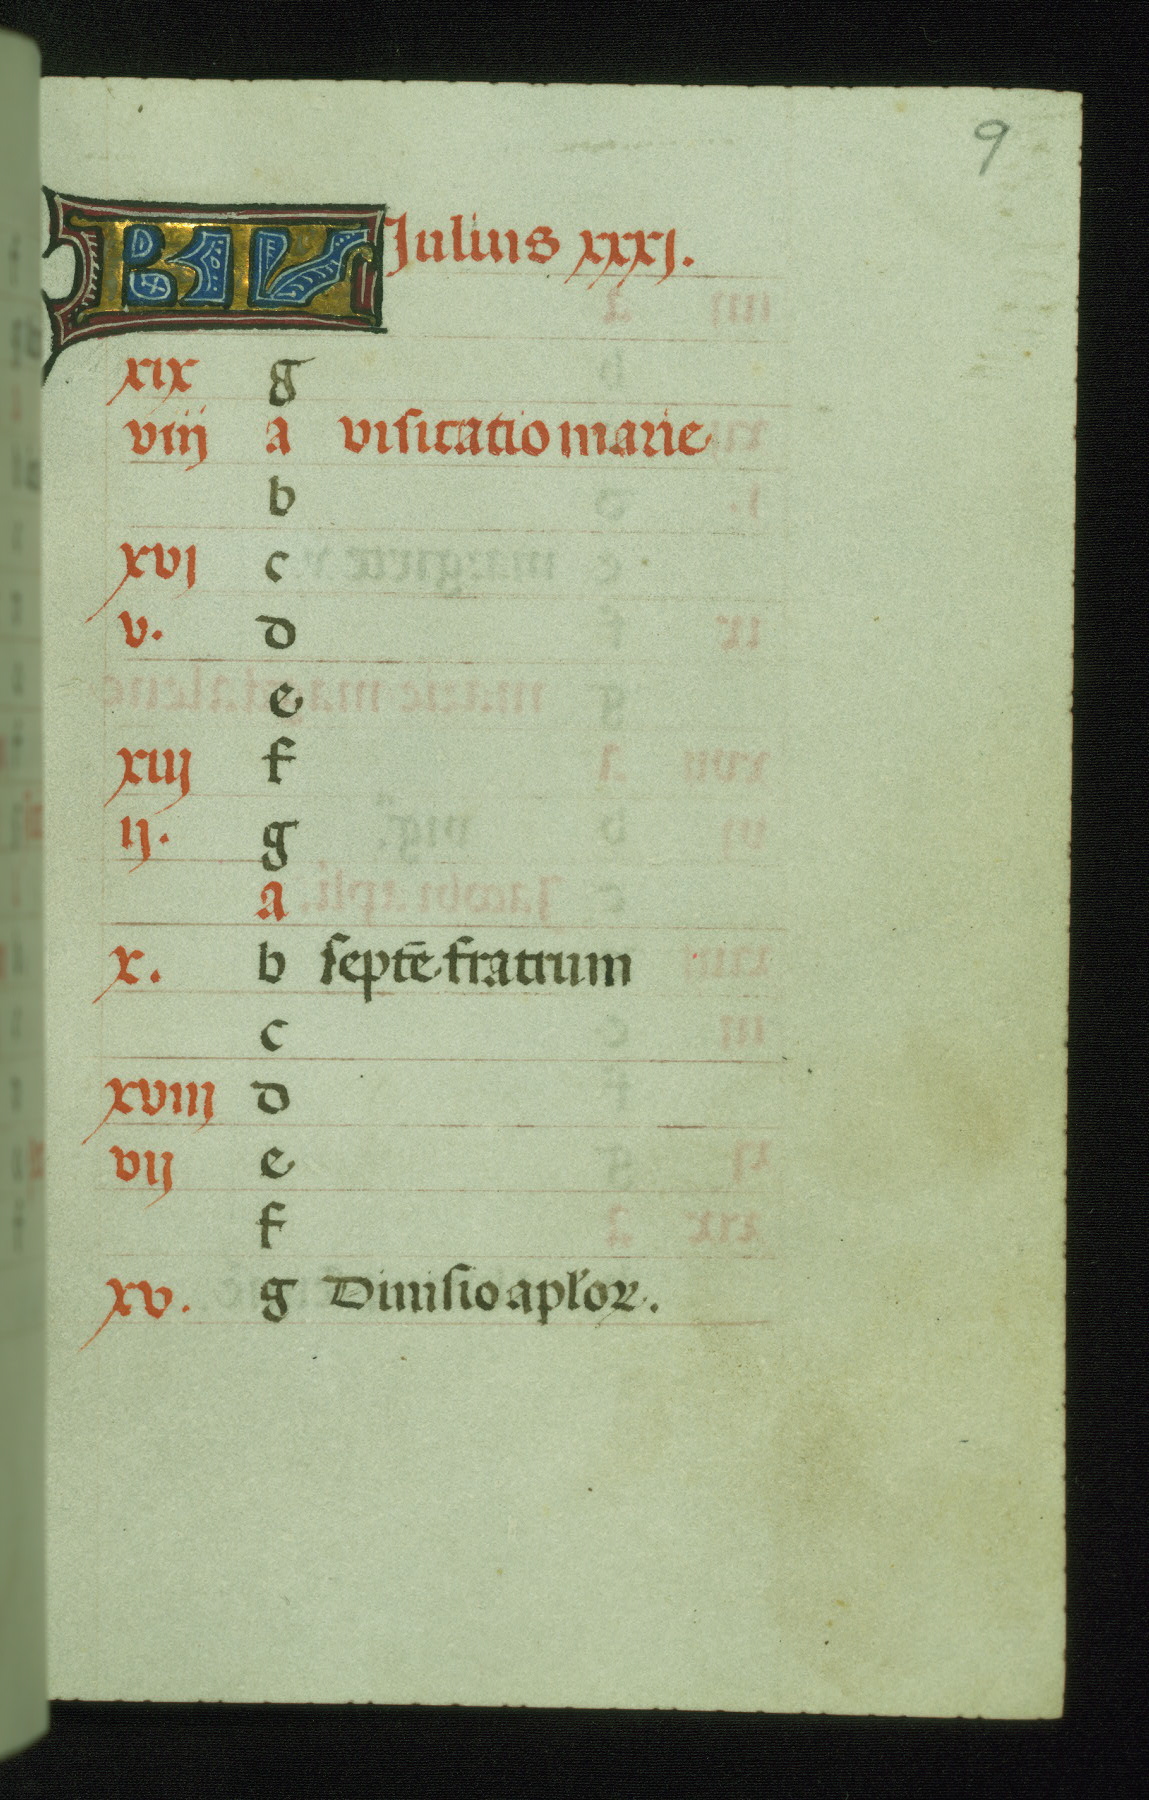 9
KL Julius xxxj.
xix g
viij a visitatio marie
b
xvj c
v. d
e
xiij f
ij. g
a
x. b septē fratrum
c
xviij d
vij e
f
xv. g Diuisio aplꝛoꝝ.